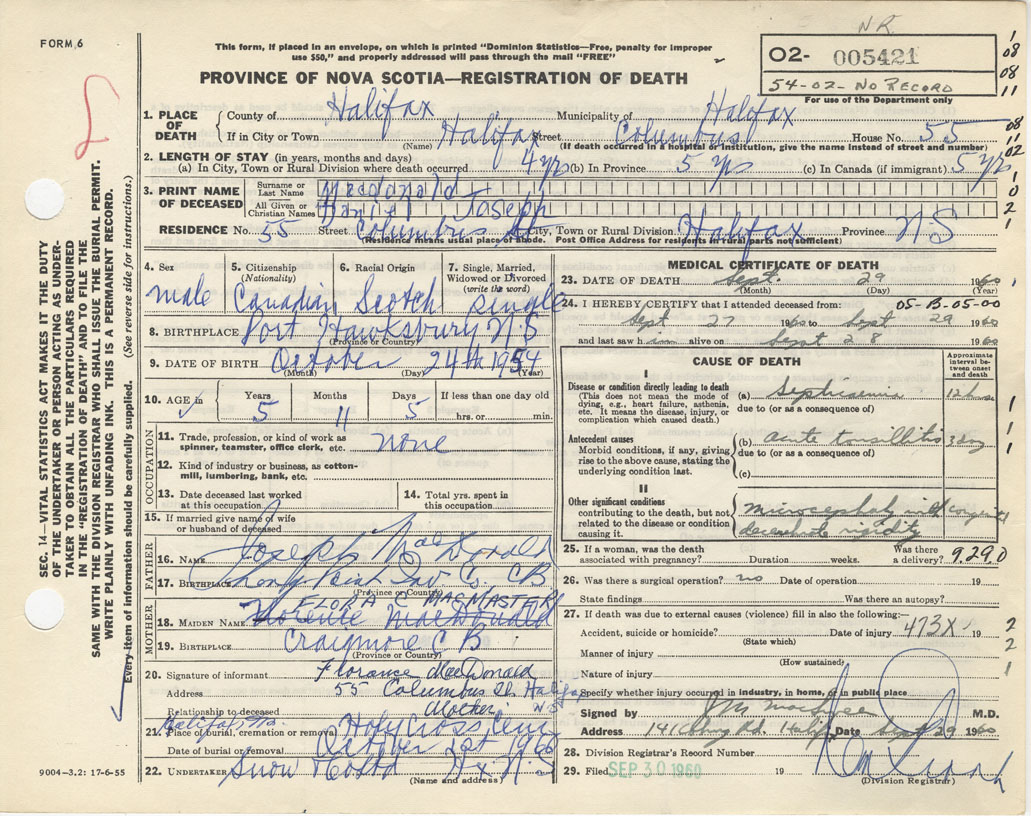 FORM 6
This form, if placed in an envelope, on which is printed "Dominion Statistics—Free, penalty for improper
use $50," and properly addressed will pass through the mail "FREE"
PROVINCE OF NOVA SCOTIA—REGISTRATION OF DEATH
N.R.
02- 005421
54-02-NO RECORD
For use of the Department only
1
08
08
11
08
11
02
1
0
2
1
SEC. 14— VITAL STATISTICS ACT MAKES IT THE DUTY
OF THE UNDERTAKER OR PERSON ACTING AS UNDER-
TAKER TO OBTAIN ALL THE PARTICULARS REQUIRED
IN THE "REGISTRATION OF DEATH" AND TO FILE THE
SAME WITH THE DIVISION REGISTRAR WHO SHALL ISSUE THE BURIAL PERMIT.
WRITE PLAINLY WITH UNFADING INK. THIS IS A PERMANENT RECORD.
Every item of information should be carefully supplied. (See reverse side for instructions.)
1. PLACE OF DEATH County of Halifax Municipality of Halifax
If in City or Town Halifax Street Columbus House No. 55
(Name) (If death occurred in a hospital or institution, give the name instead of street and number)
2. LENGTH OF STAY (in years, months and days)
(a) In City, Town or Rural Division where death occurred 4 yrs (b) In Province 5 yrs (c) In Canada (if immigrant) 5 yrs
3. PRINT NAME OF DECEASED Surname or Last Name Macdonald
All Given or Christian Names Daniel Joseph
RESIDENCE No. 55 Street Columbus St City, Town or Rural Division Halifax Province NS
(Residence means usual place of abode. Post Office Address for residents in rural parts not sufficient)
4. Sex 5. Citizenship (Nationality) 6. Racial Origin 7. Single, Married, Widowed or Divorced (write the word)
male Canadian Scotch single
8. BIRTHPLACE Port Hawksbury N.S
(Province or Country)
9. DATE OF BIRTH October 24th 1954
(Month) (Day) (Year)
10. AGE in Years Months Days If less than one day old
5 11 5 hrs. or min.
OCCUPATION
11. Trade, profession, or kind of work as spinner, teamster, office clerk, etc. none
12. Kind of industry or business, as cotton-mill, lumbering, bank, etc.
13. Date deceased last worked at this occupation 14. Total yrs. spent in this occupation
15. If married give name of wife or husband of deceased
FATHER
16. NAME Joseph MacDonald
17. BIRTHPLACE Inv Co., CB
(Province or Country)
MOTHER
FLORA C MACMASTER
18. MAIDEN NAME Florence MacDonald
19. BIRTHPLACE Craigmore C B
(Province or Country)
20. Signature of informant Florance MacDonald
Address 55 Columbus St. Halifax
N S
Relationship to deceased Mother
Halifax, Ns.
21. Place of burial, cremation or removal Holy Cross Cem
Date of burial or removal October 1st 1960
22. UNDERTAKER Snow Hx N.S.
(Name and address)
9004—3.2: 17-6-55
MEDICAL CERTIFICATE OF DEATH
23. DATE OF DEATH Sept. 29 1960
(Month) (Day) (Year)
24. I HEREBY CERTIFY that I attended deceased from: 05-B-05-00
Sept 27 1960 to Sept 29 1960
and last saw him alive on Sept 28 1960
CAUSE OF DEATH
Approximate interval between onset and death
I
Disease or condition directly leading to death
(This does not mean the mode of dying, e.g., heart failure, asthenia, etc. It means the disease, injury, or complication which caused death.)
(a) Septicaemia 12 hours
due to (or as a consequence of)
Antecedent causes
Morbid conditions, if any, giving rise to the above cause, stating the underlying condition last.
(b) acute tonsillitis 3 day
due to (or as a consequence of)
(c)
II
Other significant conditions
contributing to the death, but not related to the disease or condition causing it.
microcephaly with congenital
decerebrate rigidity
1
1
1
1
25. If a woman, was the death associated with pregnancy? Duration weeks. Was there a delivery? 9.29.0
26. Was there a surgical operation? no Date of operation 19
State findings Was there an autopsy?
27. If death was due to external causes (violence) fill in also the following:—
Accident, suicide or homicide? Date of injury 473X 19
(State which)
Manner of injury
(How sustained)
Nature of injury
Specify whether injury occurred in industry, in home, or in public place
2
2
1
Signed by M.D.
Address Rd. Halifax Date Sept 29 1960
28. Division Registrar's Record Number
29. Filed SEP 30 1960 19
(Division Registrar)